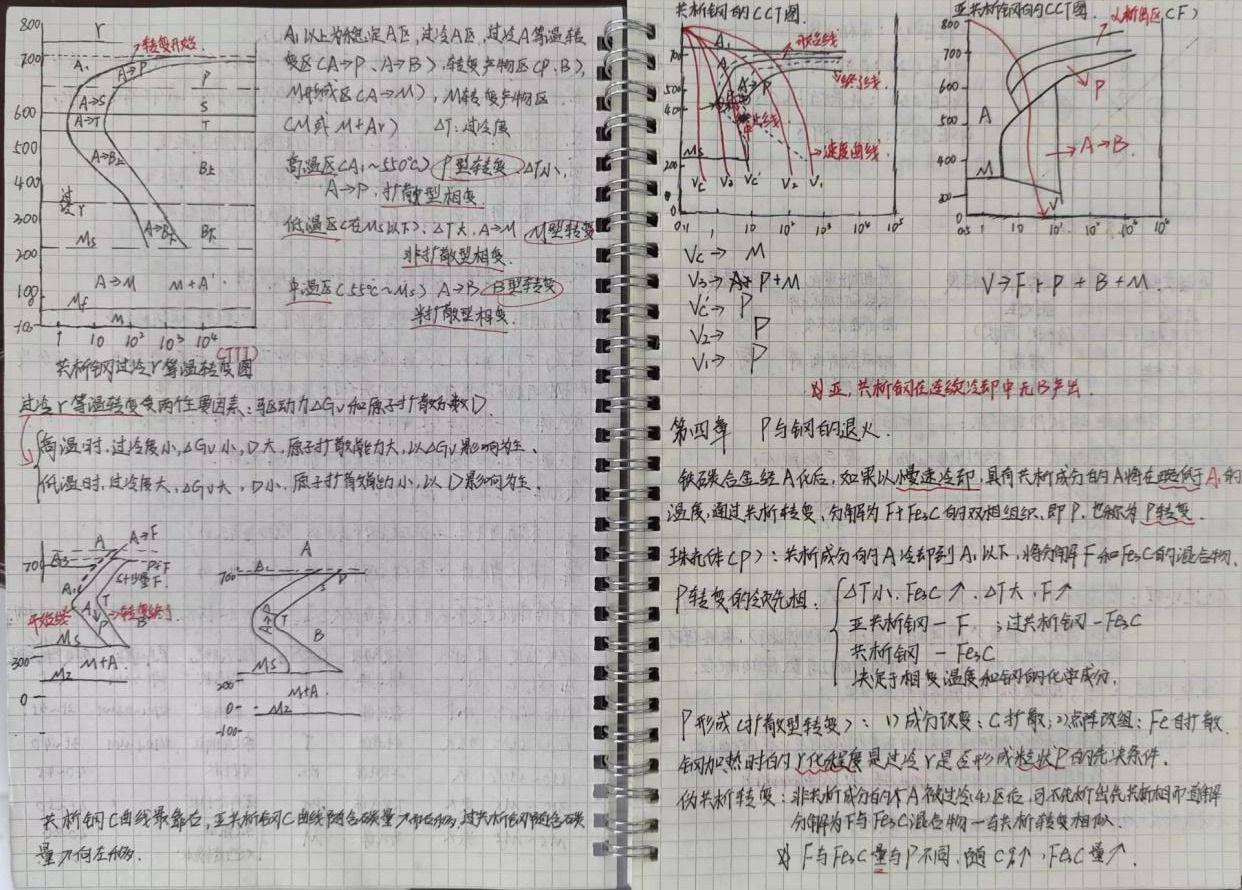 800
700
600
500
400
300
200
100
0
γ
转变开始
A₁
A→P
P
A→S
S
A→T
T
A→B上
B上
过冷γ
A→B下
B下
Ms
A→M
M+A'
Mf
M
1 10 10² 10³ 10⁴
(TTT)
共析钢过冷γ等温转变图
A₁以上为稳定A区,过冷A区,过冷A等温转
变区(A→P、A→B),转变产物区(P、B),
M形成区(A→M),M转变产物区
(M或M+Ar) ΔT:过冷度
高温区(A₁~550℃) P型转变 ΔT小,
A→P,扩散型相变.
低温区(在Ms以下),ΔT大,A→M M型转变
非扩散型相变.
中温区(55℃~Ms) A→B B型转变
半扩散型相变.
过冷γ等温转变受两个主要因素:驱动力ΔGv和原子扩散系数D.
高温时,过冷度小,ΔGv小,D大,原子扩散能力大,以ΔGv影响为主.
低温时,过冷度大,ΔGv大,D小,原子扩散能力小,以D影响为主.
A
A→F
700
A₃
P+F
开始线
转变终了
B
Ms
300
M+A
Mz
0
A
700
P
S
A→P
T
B
Ms
200
M+A
0
Mz
-100
共析钢C曲线最靠右,亚共析钢C曲线随含碳量↗向右移,过共析钢随含碳
量↗向左移.
共析钢的CCT图.
700
500
400
200
0
A₁
开始线
A→P
终了线
中止线
速度曲线
Ms
Vc V₃ Vc' V₂ V₁
0.1 1 10 10² 10³ 10⁴ 10⁵
Vc→ M
V₃→ P+M
Vc'→ P
V₂→ P
V₁→ P
亚共析钢的CCT图.
析出区(F)
800
700
600
400
300
0
A
P
A→B
M
V
0.5 1 10 10² 10³ 10⁴
V→F+P+B+M.
共析钢在连续冷却中无B产出.
第四章 P与钢的退火.
铁碳合金经A化后,如果以慢速冷却,具有共析成分的A将在略低于A₁的
温度,通过共析转变,分解为F+Fe₃C的双相组织,即P,也称为P转变.
珠光体(P):共析成分的A冷却到A₁以下,将分解F和Fe₃C的混合物.
P转变的领先相.
ΔT小,Fe₃C↑.ΔT大,F↑
亚共析钢—F ;过共析钢—Fe₃C
共析钢—Fe₃C
决定于相变温度和钢的化学成分.
P形成(扩散型转变):1)成分改变:C扩散;2)点阵改组:Fe自扩散.
钢加热时的γ化程度是过冷γ是否形成粒状P的先决条件.
伪共析转变:非共析成分的A被过冷(4)区后,可不先析出先共析相而直接
分解为F与Fe₃C混合物—与共析转变相似.
F与Fe₃C量与P不同,随C%↑,Fe₃C量↗.